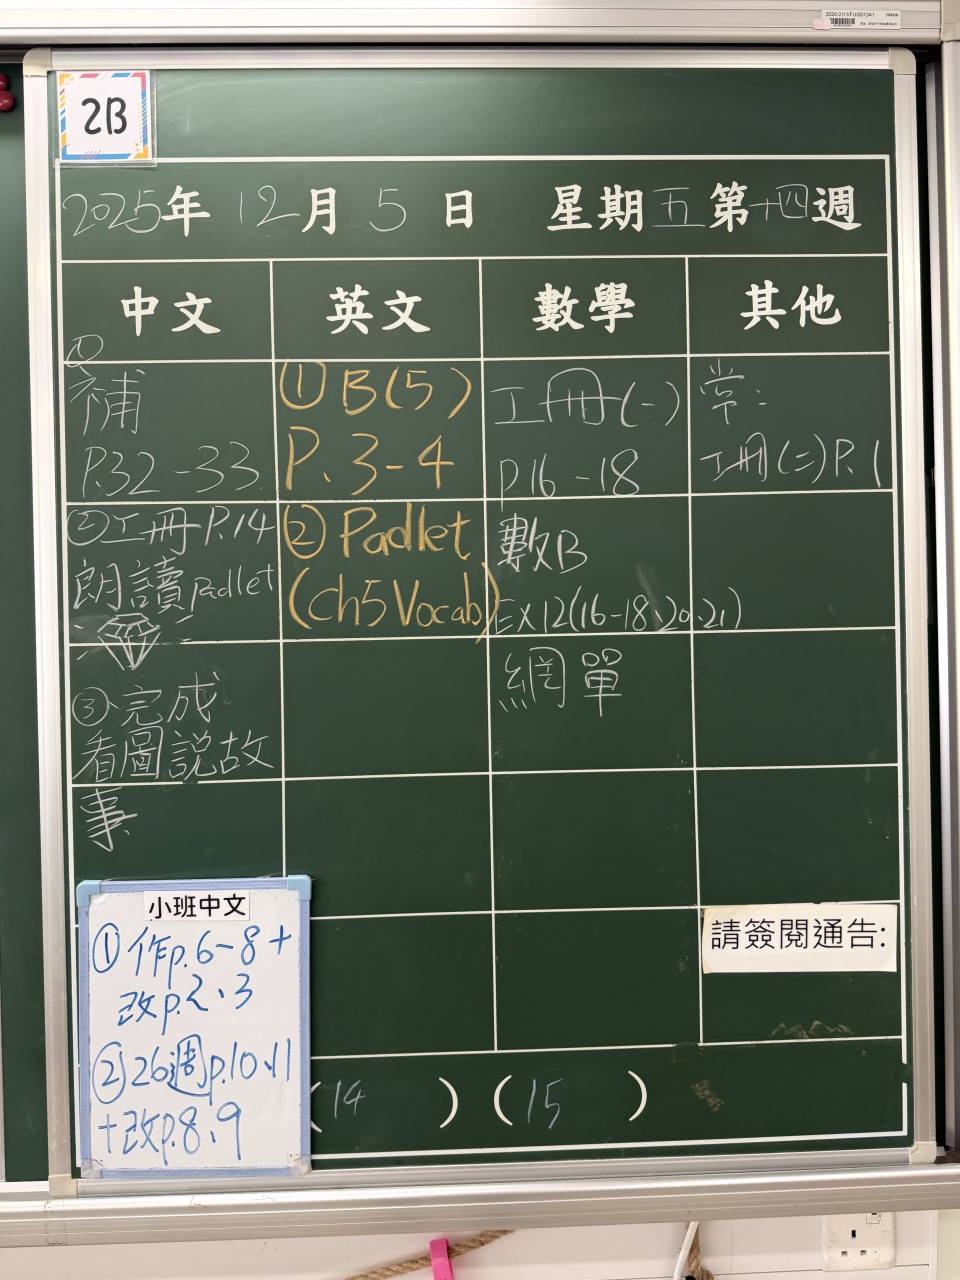 2020-21/1/FU/001341
2B
2025年 12月 5日 星期五第十四週
中文 英文 數學 其他
①
補
P.32-33
②工冊P.14
朗讀padlet
③完成
看圖說故
事
① B(5)
P.3-4
② Padlet
(ch5 Vocab)
工冊(一)
p.16-18
數B
Ex12(16-18、20、21)
網單
常:
工冊(二)P.1
請簽閱通告:
小班中文
①作p.6-8+
改p.2、3
②26週p.10、11
+改p.8、9
(14 ) (15 )